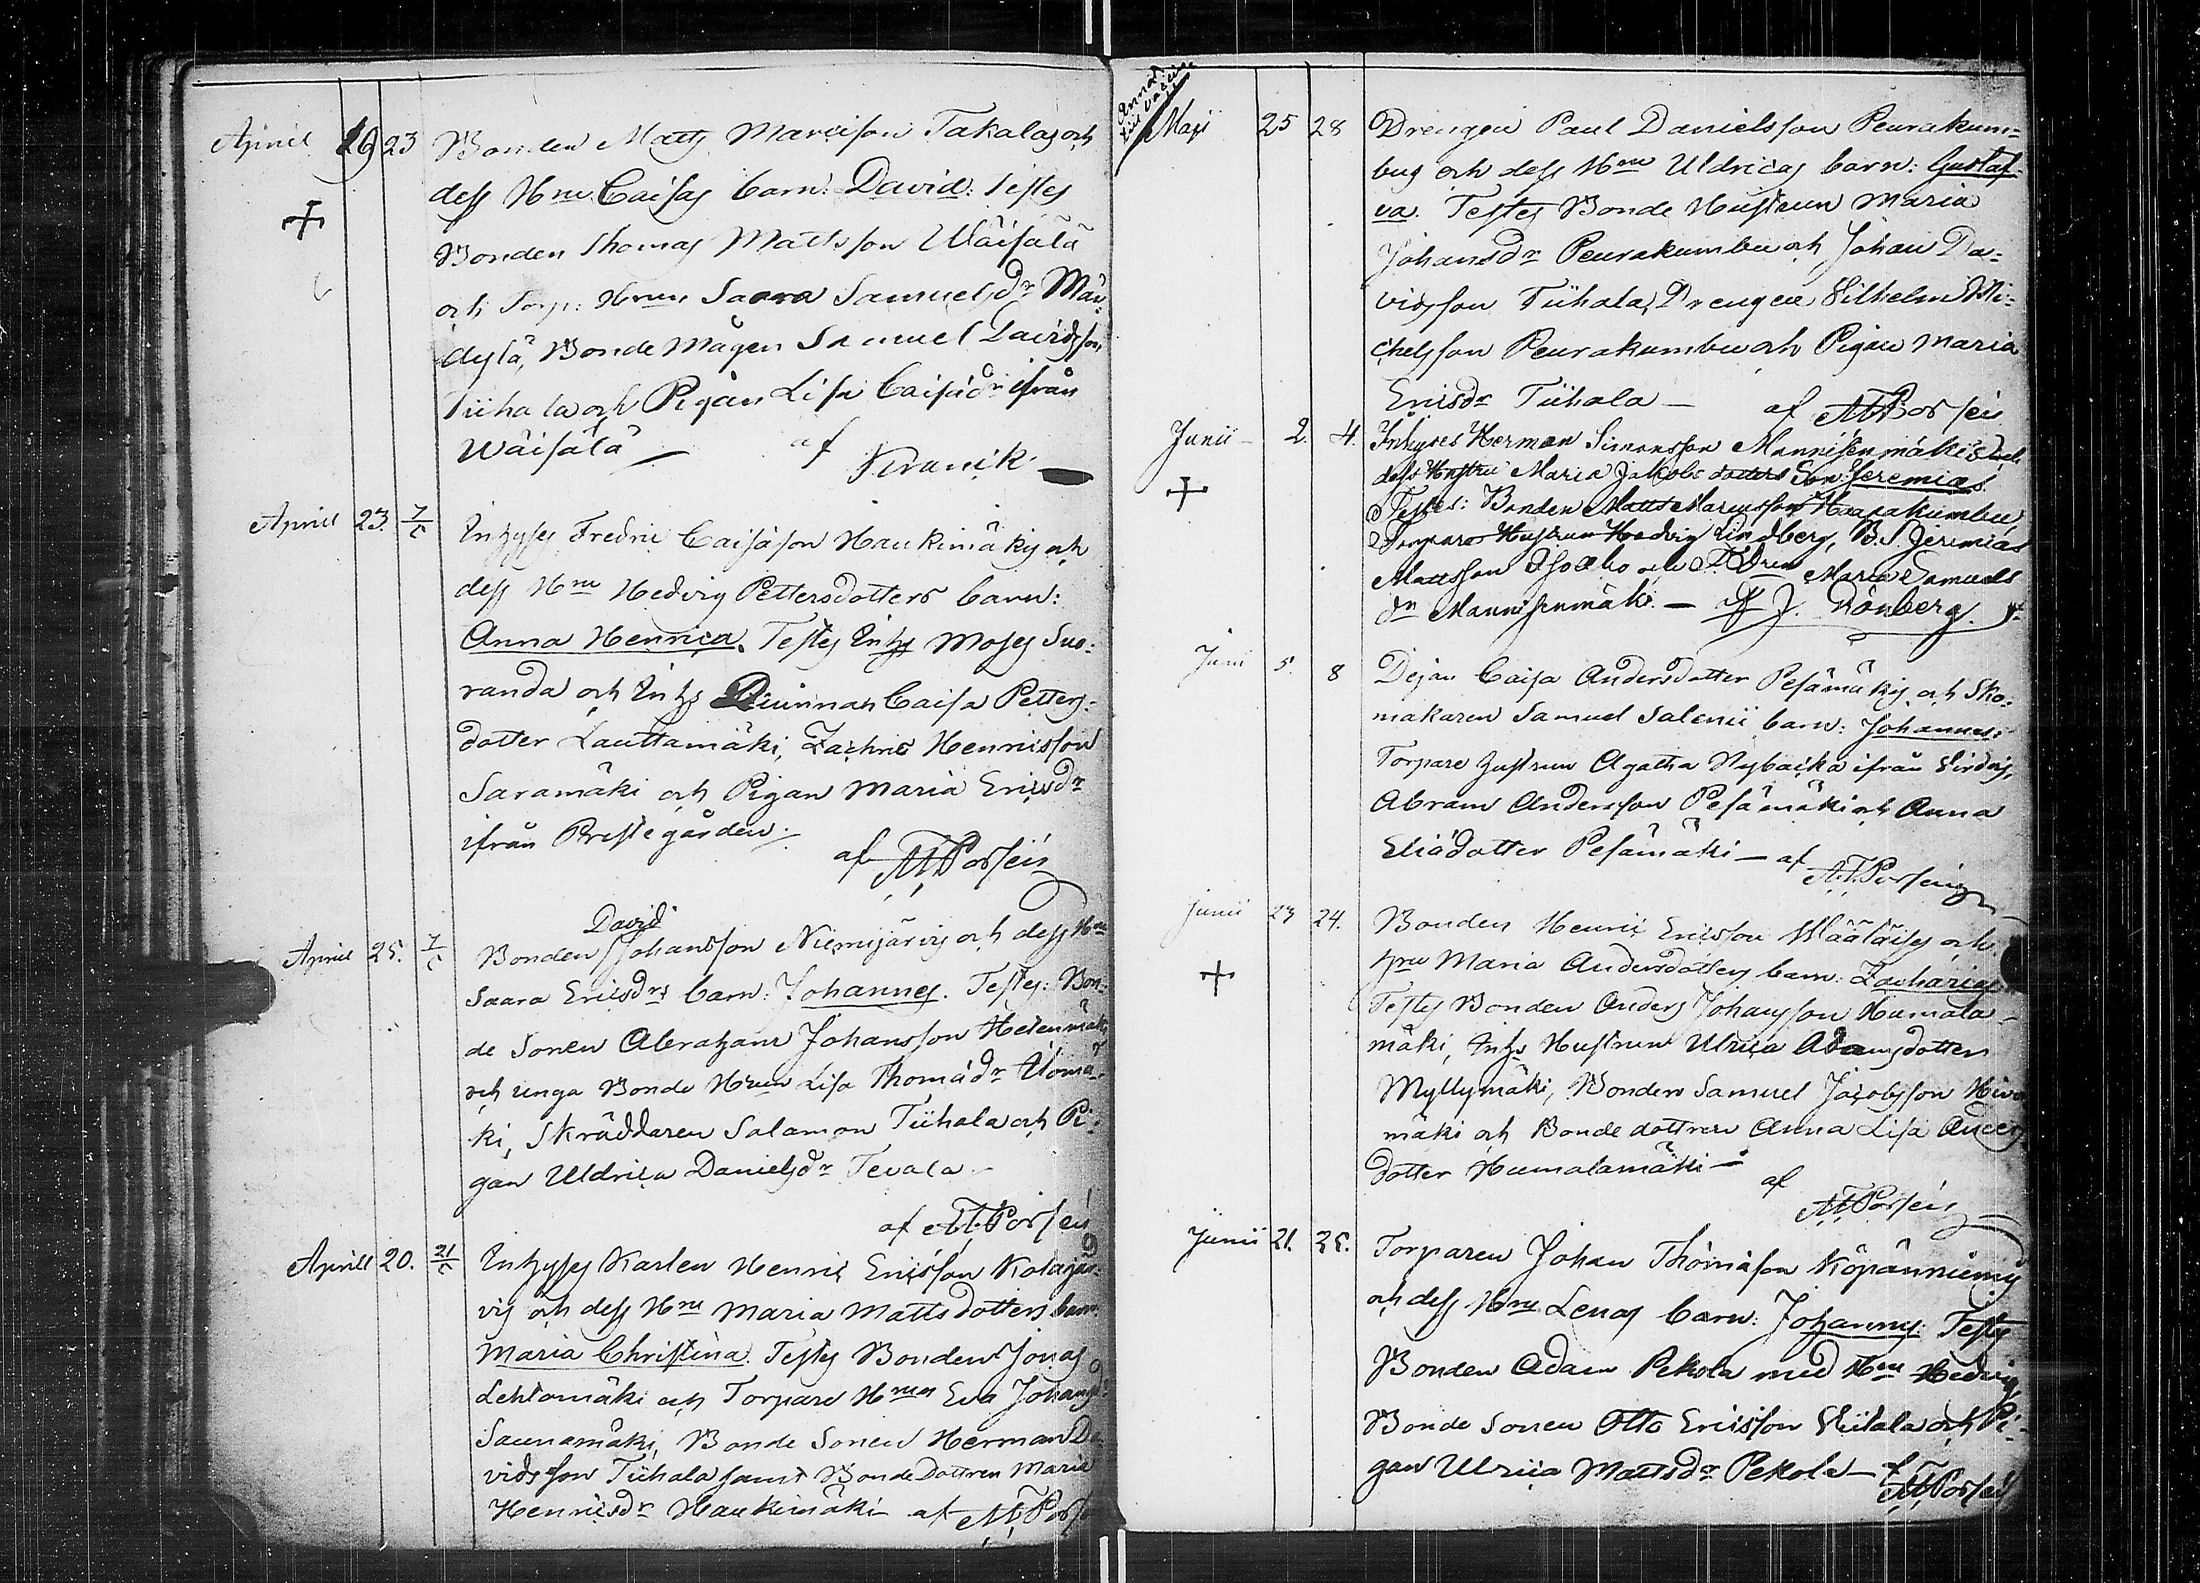 April 19 23 Bonden Matts Marcisson Takalas och
dess Hru Caisas barn: David: Testes
Bonden Thomas Mattsson Wäisälä
och Torp: Hrun Saara Samuelsdr Mäu-
dylä, Bonde Mågen Samuel Davidsson
Tiihala och Pigan Lisa Caisädr ifrån
Wäisälä — af Kranck
April 23. 7/5 Inhyses Fredric Caisäson Haukimäkis och
dess Hru Hedvig Pettersdotters barn:
Anna Henrica. Testes Inhs Moses Suo-
randa och Inhs Qvinnan Caisa Petters-
dotter Lauttamäki, Zachris Henricsson
Saramäki och Pigan Maria Ericsdr
ifrån Prestegården.
af M. Porsein
David
April 25. 7/5 Bonden Johansson Niemijärvis och dess Hru
Saara Ericsdrs barn: Johannes. Testes: Bon-
de Sonen Abraham Johansson Hetenmäki
och unga Bonde Hrun Lisa Thomädr Alomä-
ki, Skräddaren Salamon Tiihala och Pi-
gan Uldrica Danielsdr Tevala
af M. Porsein
Aprill 20. 21/5 Inhyses Karlen Henric Ericsson Kolojär-
vis och dess Hru Maria Mattsdotters barn.
Maria Christina. Testes Bonden Jonas
Lehtomäki och Torpare Hrun Eva Johansd:
Saunamäki, Bonde Sonen Herman Da-
vidsson Tiihala samt Bonde Dottren Maria
Henricsdr Haukimäki af M. Pors
Annat
Maji 25 28 Drengen Paul Danielsson Peurakum-
bus och dess Hru Uldricas barn: Gustaf-
va. Testes Bonde Hustrun Maria
Johansdr Peurakumbu och Johan Da-
vidsson Tiihala, Drengen Vilhelm Mi-
chelsson Peurakumbu och Pigan Maria
Ericsdr Tiihala — af M. Porsein
Junii 2. 4. Inhyses Herman Simonsson Mannisenmäkis och
dess Hustru Maria Jakobs dotters Son: Jeremias.
Testes: Bonden Matts Marcusson Haapakumbu,
Torpare Hustrun Hedvig Lindberg, B.S. Jeremias
Mattsson Isoaho och B.Dren Maria Samuels
dr Mannisenmäki. — af J. Rönberg.
Junii 5. 8 Pigan Caisa Andersdotter Pesämäkis och Sko-
makaren Samuel Salenii barn: Johannes:
Torpare hustrun Agatha Nybacka ifrån Virdois,
Abram Andersson Pesämäki och Anna
Eliädotter Pesämäki — af
M. Porsein
Junii 23 24. Bonden Henric Ericsson Määtäises och
hru Maria Andersdotters barn: Zacharias
Testes Bonden Anders Johansson Humala-
mäki, Inhs Hustrun Ulrica Adamsdotter
Myllymäki, Bonden Samuel Jacobsson Hirvi
mäki och Bonde dottren Anna Lisa Anders
dotter Humalamäki — af
M. Porsein
Junii 21. 25. Torparen Johan Thomäson Köpänniemis
och dess Hru Lenas barn: Johannes Testes
Bonden Adam Pekola med Hru Hedvig,
Bonde Sonen Otto Ericsson Viitala och Pi-
gan Ulrica Mattsdr Pekola — af
M. Porsein